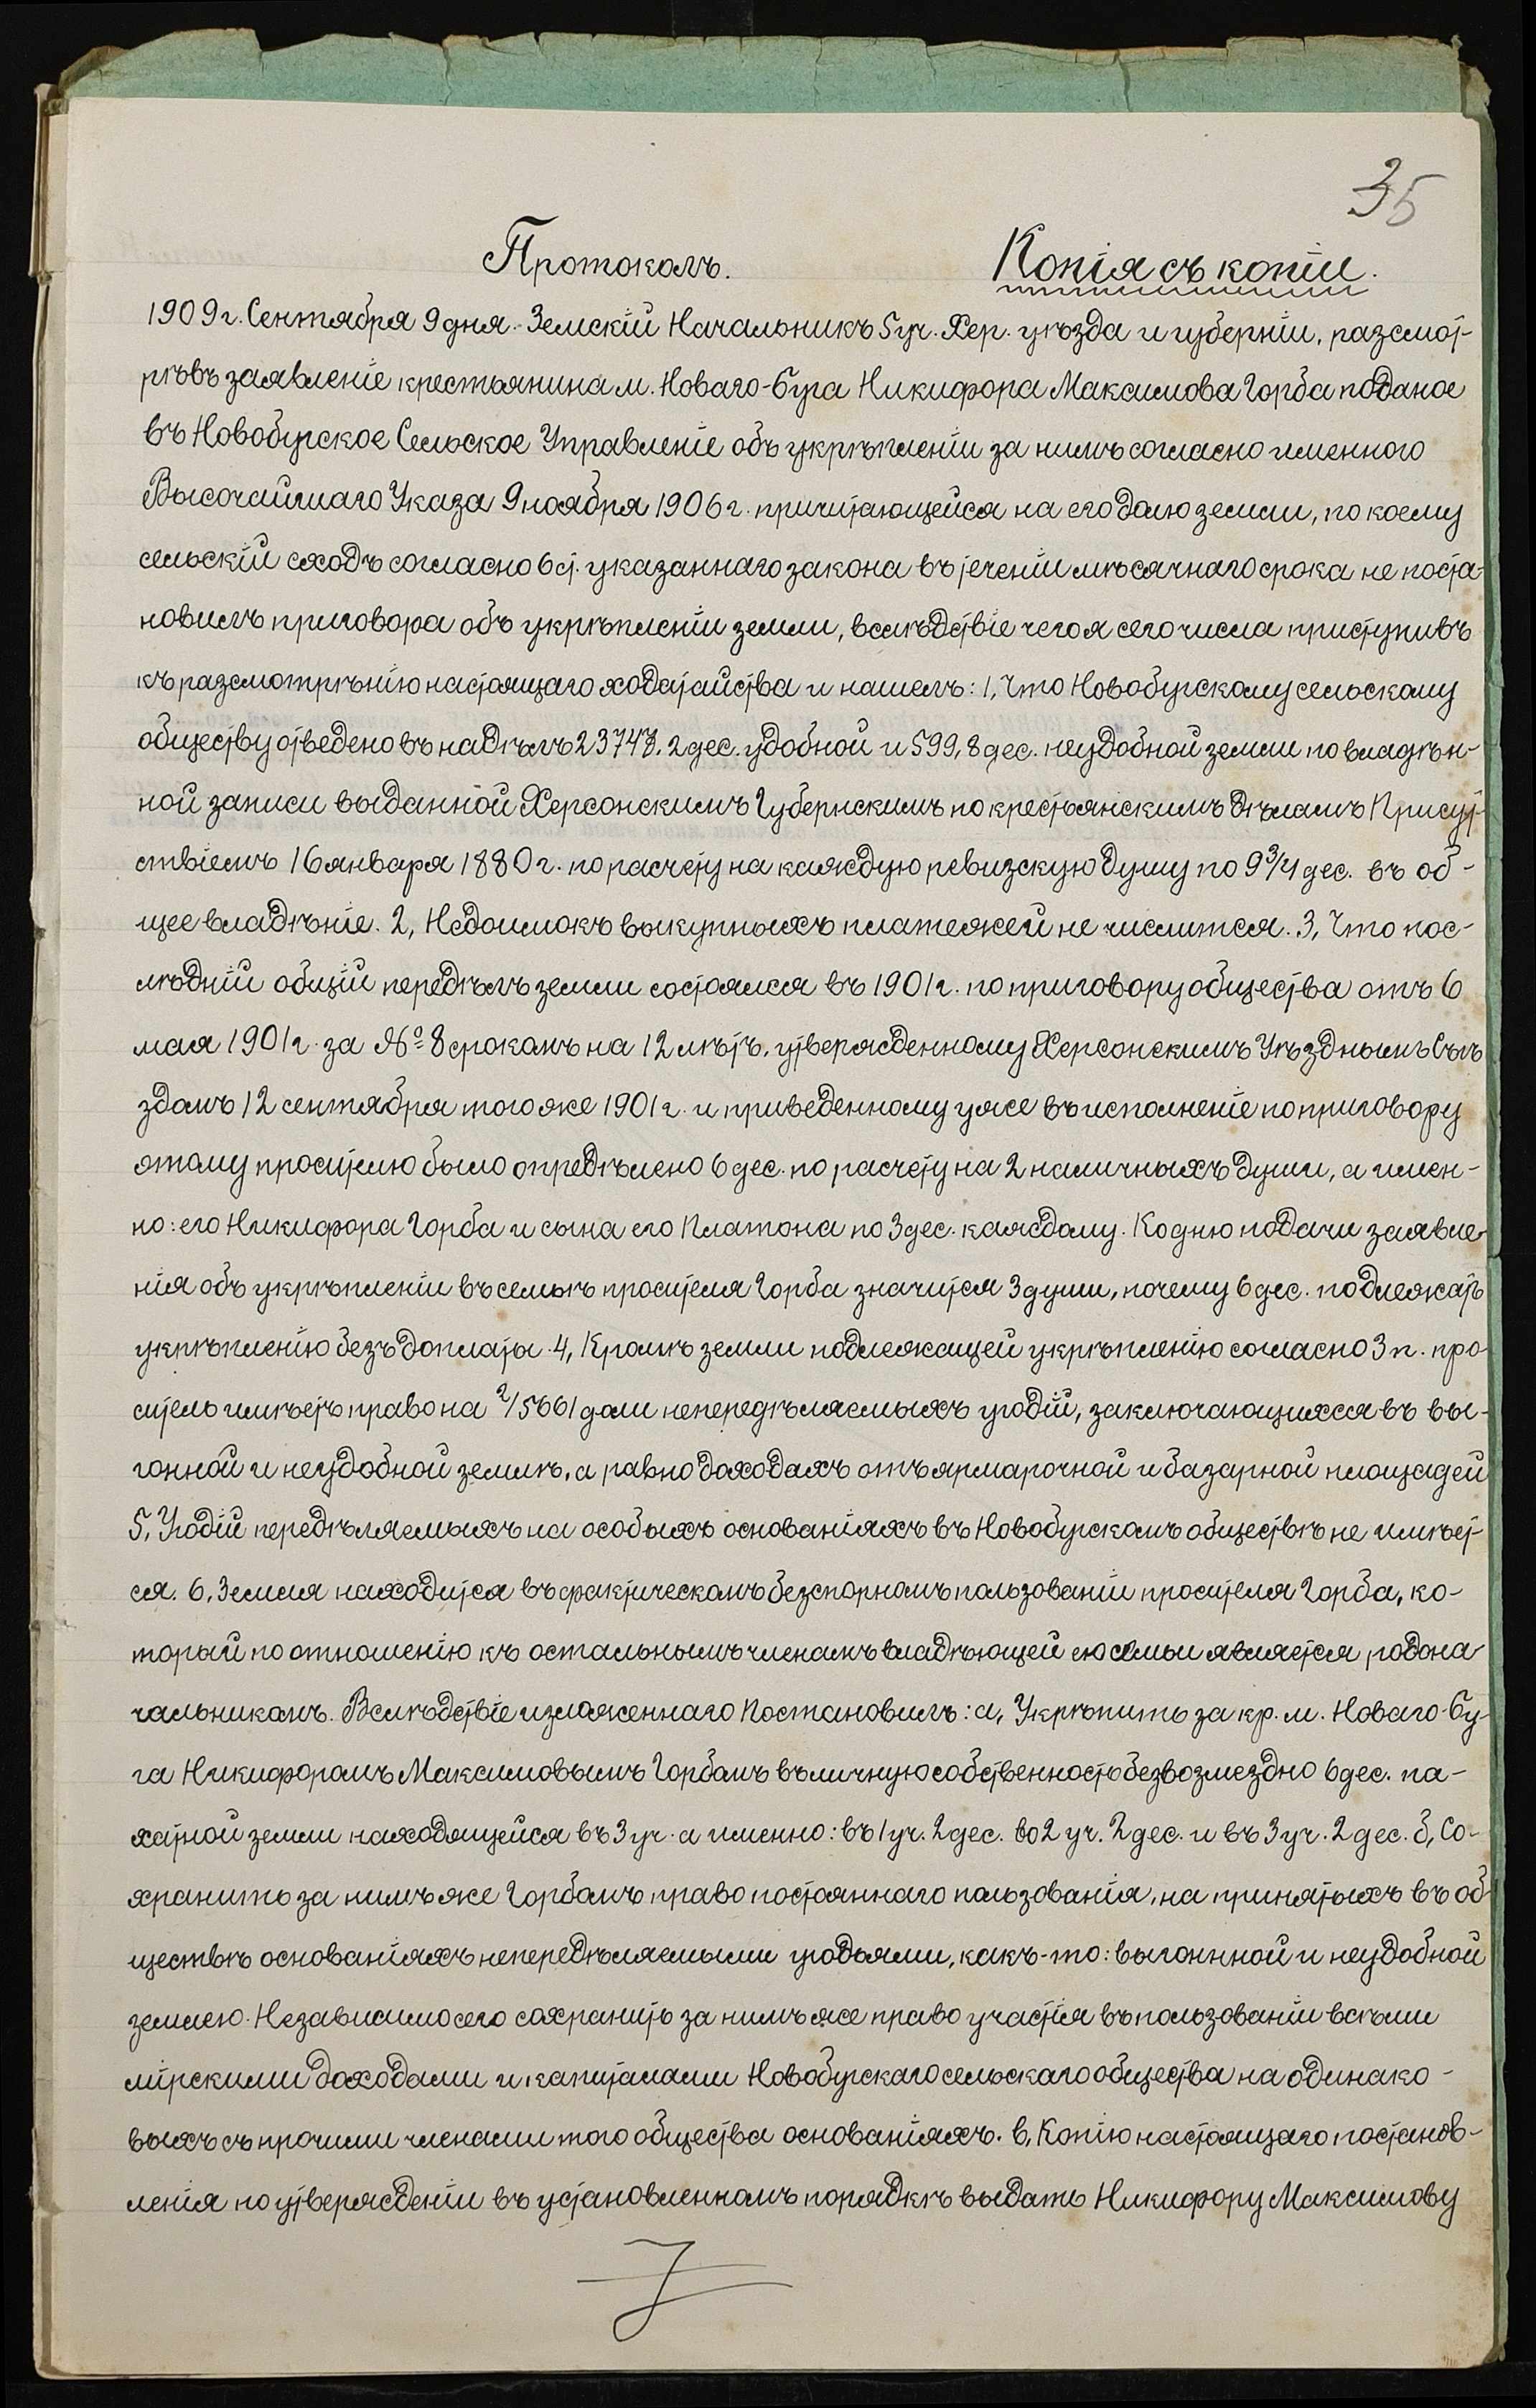 35
Протоколъ. Копія съ копіи.
1909 г. Сентября 9 дня. Земскій Начальникъ 5 уч. Хер. уѣзда и губерніи, разсмот-
рѣвъ заявленіе крестьянина м. Новаго-Буга Никифора Максимова Горба поданое
въ Новобугское Сельское Управленіе объ укрѣпленіи за нимъ согласно именного
Высочайшаго Указа 9 ноября 1906 г. причитающейся на его долю земли, по коему
сельскій сходъ согласно 6 ст. указаннаго закона въ теченіи мѣсячнаго срока не поста-
новилъ приговора объ укрѣпленіи земли, вслѣдствіе чего я сего числа приступивъ
къ разсмотрѣнію настоящаго ходатайства и нашелъ: 1, Что Новобугскому сельскому
обществу отведено въ надѣлъ 23747,2 дес. удобной и 599,8 дес. неудобной земли по владѣн-
ной записи выданной Херсонскимъ Губернскимъ по крестьянскимъ дѣламъ Присут-
ствіемъ 16 января 1880 г. по расчету на каждую ревизскую душу по 9 3/4 дес. въ об-
щее владѣніе. 2, Недоимокъ выкупныхъ платежей не числится. 3, Что пос-
лѣдній общій передѣлъ земли состоялся въ 1901 г. по приговору общества отъ 6
мая 1901 г. за № 8 срокомъ на 12 лѣтъ, утвержденному Херсонскимъ Уѣзднымъ Съѣ
здомъ 12 сентября того же 1901 г. и приведенному уже въ исполненіе по приговору
этому просителю было опредѣлено 6 дес. по расчету на 2 наличныхъ души, а имен-
но: его Никифора Горба и сына его Платона по 3 дес. каждому. Ко дню подачи заявле-
нія объ укрѣпленіи въ семьѣ просителя Горба значится 3 души, почему 6 дес. подлежатъ
укрѣпленію безъ доплаты. 4, Кромѣ земли подлежащей укрѣпленію согласно 3 п. про-
ситель имѣетъ право на 2/5661 доли непередѣляемыхъ угодій, заключающихся въ вы-
гонной и неудобной землѣ, а равно доходахъ отъ ярмарочной и базарной площадей
5, Угодій передѣляемыхъ на особыхъ основаніяхъ въ Новобугскомъ обществѣ не имѣет-
ся. 6, Земля находится въ фактическомъ безспорномъ пользованіи просителя Горба, ко-
торый по отношенію къ остальнымъ членамъ владѣющей ею семьи является родона-
чальникомъ. Вслѣдствіе изложеннаго Постановилъ: а, Укрѣпить за кр. м. Новаго-Бу-
га Никифоромъ Максимовымъ Горбомъ въ личную собственность безвозмездно 6 дес. па-
хатной земли находящейся въ 3 уч. а именно: въ 1 уч. 2 дес. во 2 уч. 2 дес. и въ 3 уч. 2 дес. б, Со-
хранить за нимъ же Горбомъ право постояннаго пользованія, на принятыхъ въ об-
ществѣ основаніяхъ непередѣляемыми угодьями, какъ-то: выгоннной и неудобной
землею. Независимо сего сохранить за нимъ же право участія въ пользованіи всѣми
мірскими доходами и капиталами Новобугскаго сельскаго общества на одинако-
выхъ съ прочими членами того общества основаніяхъ. в, Копію настоящаго постанов-
ленія по утвержденіи въ установленномъ порядкѣ выдать Никифору Максимову